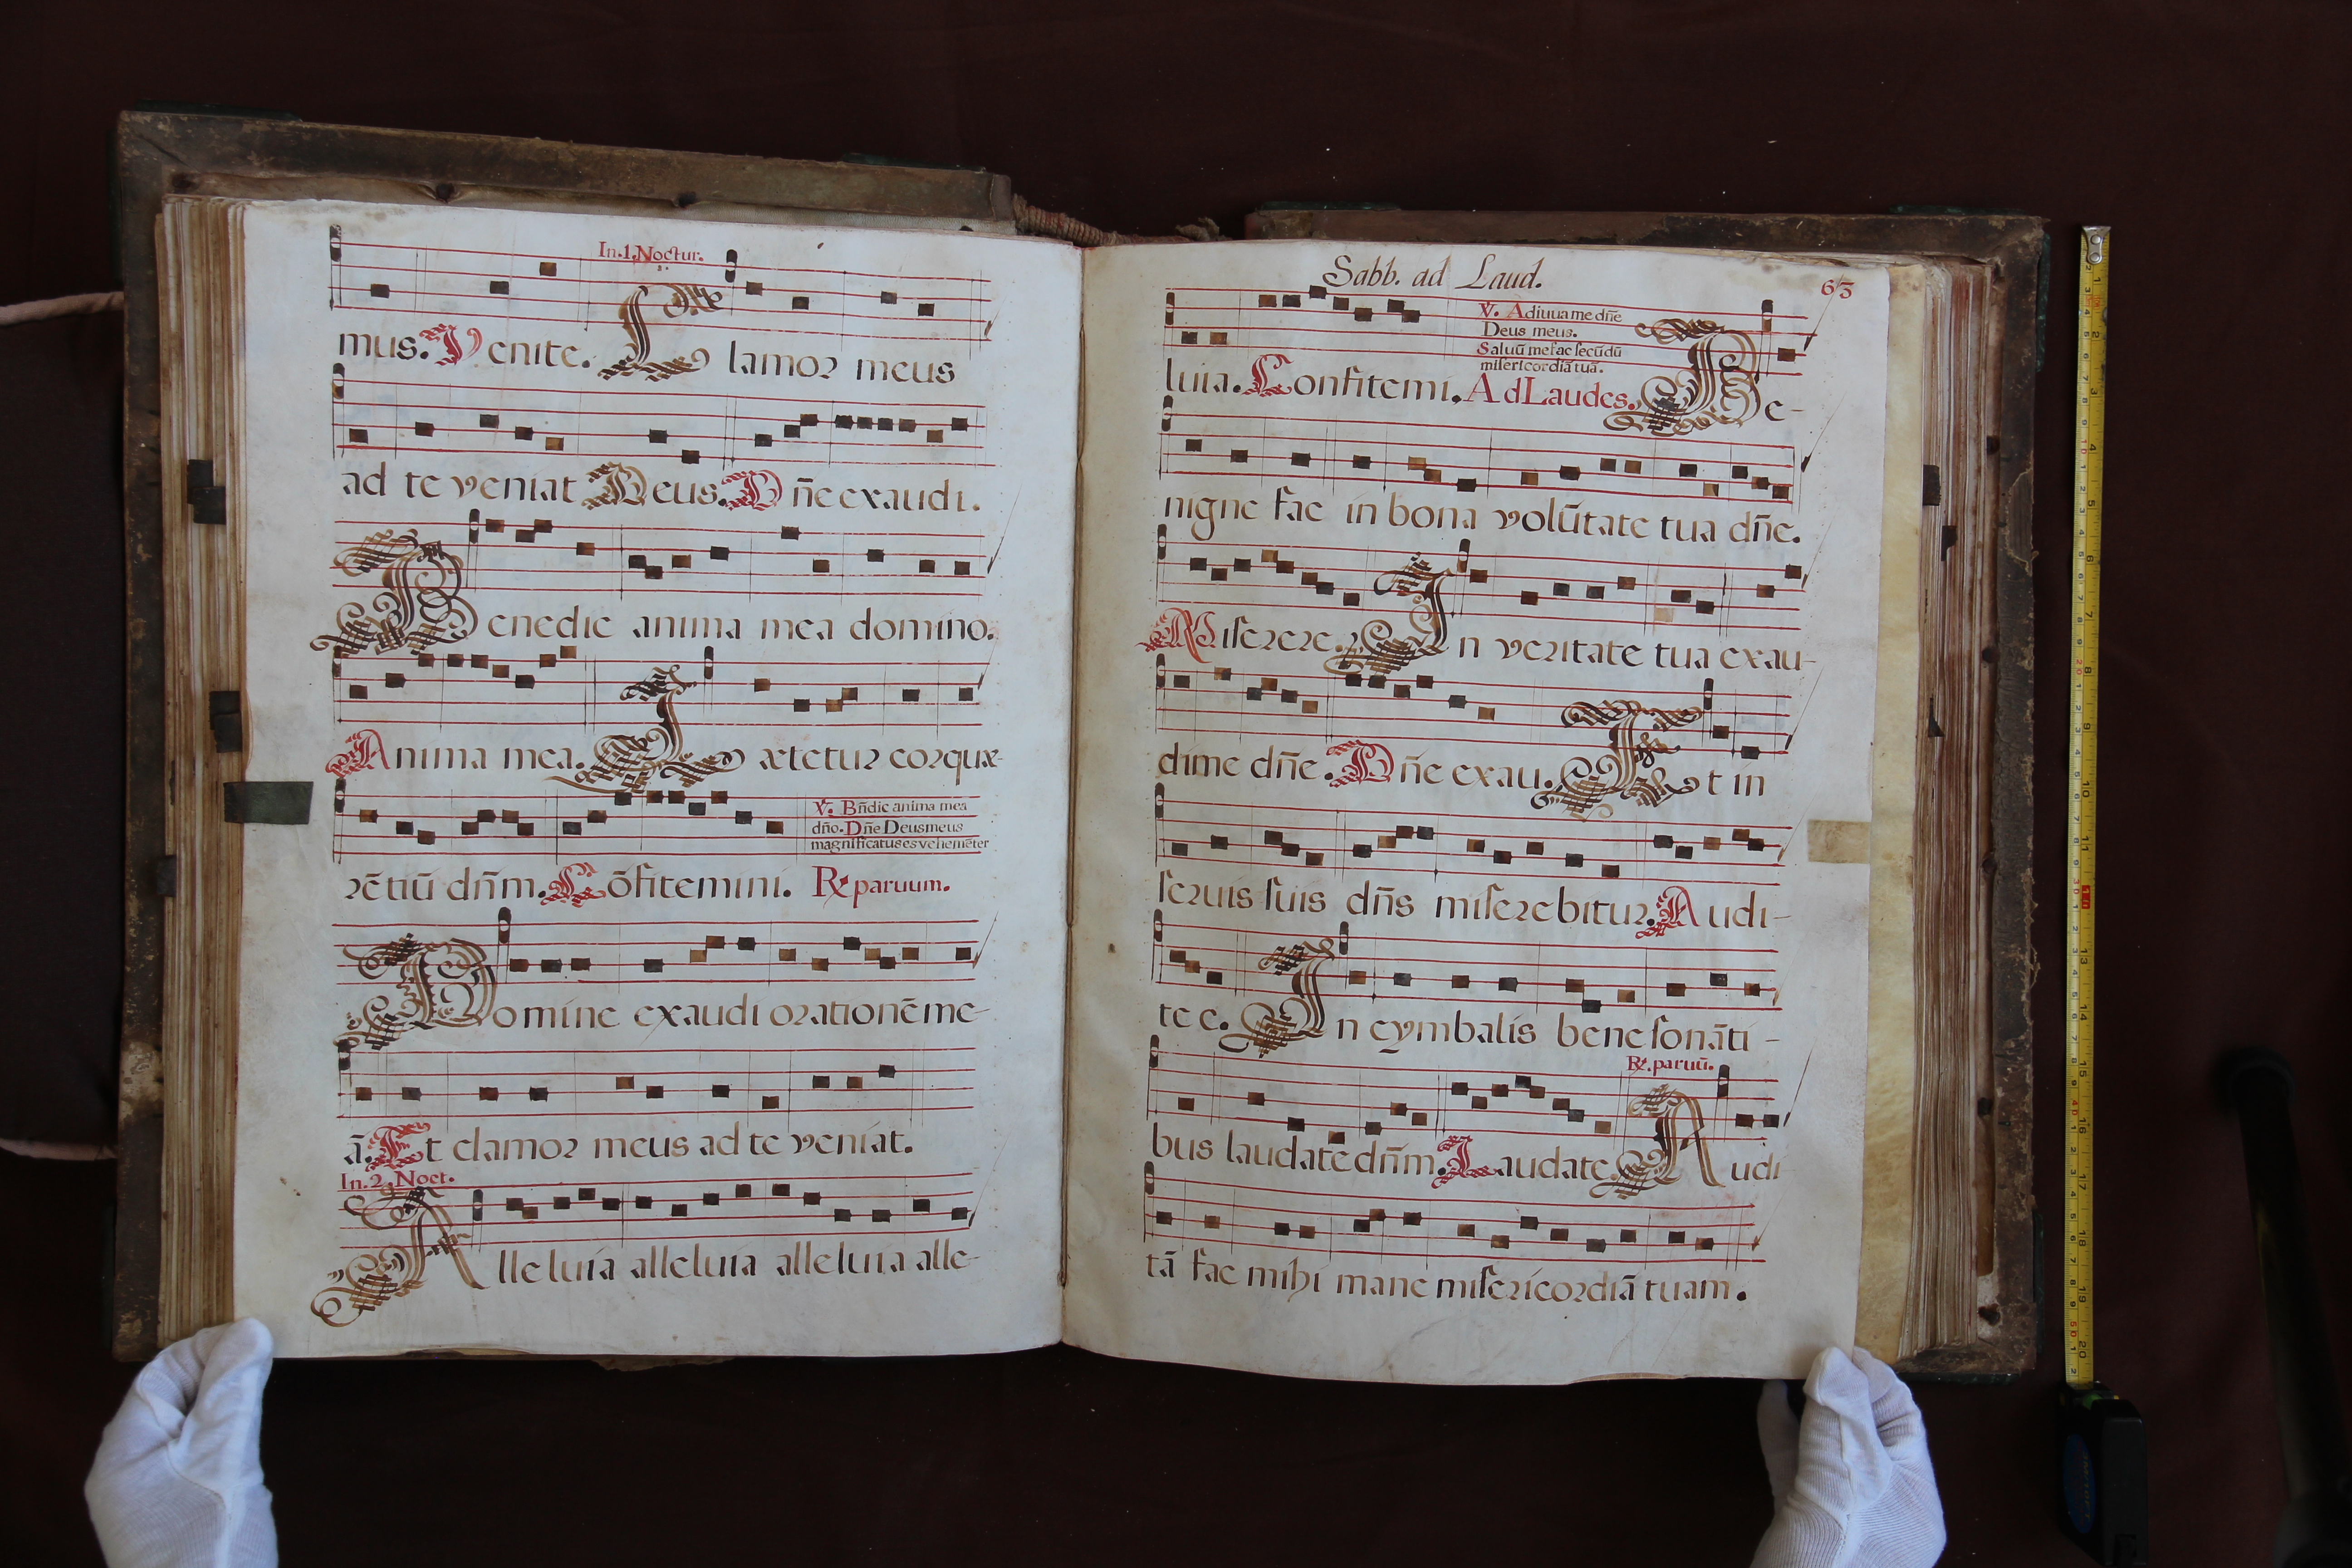 In. 1. Noctur.
mus. Venite. Clamor meus
ad te veniat Deus. Dñe exaudi.
Benedic anima mea domino.
Anima mea. Lætetur cor quæ-
rētiū dñm. Cōfitemini. ℟ paruum.
℣. Bñdic anima mea
dño. Dñe Deus meus
magnificatus es vehemēter
Domine exaudi orationē me-
ā. Et clamor meus ad te veniat.
In. 2. Noct.
Alleluia alleluia alleluia alle-
Sabb. ad Laud.
63
luia. Confitemi. Ad Laudes. Be-
℣. Adiuua me dñe
Deus meus.
Saluū me fac secūdū
misericordiā tuā.
nigne fac in bona volūtate tua dñe.
Miserere. In veritate tua exau-
di me dñe. Dñe exau. Et in
seruis suis dñs miserebitur. Audi-
te c. In cymbalis bene sonāti-
℟. paruū.
bus laudate dñm. Laudate. Audi
tā fac mihi mane misericordiā tuam.